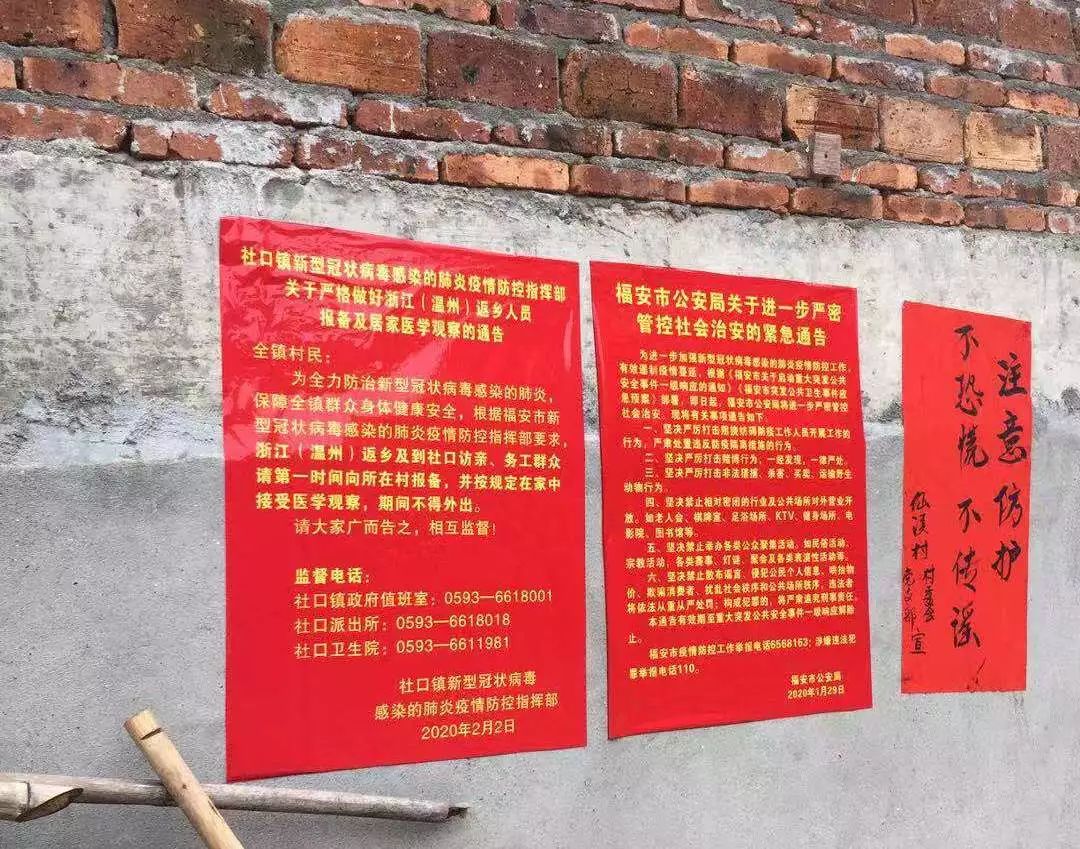 社口镇新型冠状病毒感染的肺炎疫情防控指挥部
关于严格做好浙江（温州）返乡人员
报备及居家医学观察的通告
全镇村民：
为全力防治新型冠状病毒感染的肺炎，
保障全镇群众身体健康安全，根据福安市新
型冠状病毒感染的肺炎疫情防控指挥部要求，
浙江（温州）返乡及到社口访亲、务工群众
请第一时间向所在村报备，并按规定在家中
接受医学观察，期间不得外出。
请大家广而告之，相互监督！
监督电话：
社口镇政府值班室：0593—6618001
社口派出所：0593—6618018
社口卫生院：0593—6611981
社口镇新型冠状病毒
感染的肺炎疫情防控指挥部
2020年2月2日
福安市公安局关于进一步严密
管控社会治安的紧急通告
为进一步加强新型冠状病毒感染的肺炎疫情防控工作，
有效遏制疫情蔓延，根据《福安市关于启动重大突发公共
安全事件一级响应的通知》《福安市突发公共卫生事件应
急预案》部署，即日起，福安市公安局将进一步严密管控
社会治安，现将有关事项通告如下。
一、坚决严厉打击阻挠妨碍防疫工作人员开展工作的
行为，严肃处置违反防疫隔离措施的行为。
二、坚决严厉打击赌博行为，一经发现，一律严处。
三、坚决严厉打击非法猎捕、杀害、买卖、运输野生
动物行为。
四、坚决禁止相对密闭的行业及公共场所对外营业开
放。如老人会、棋牌室、足浴场所、KTV、健身场所、电
影院、图书馆等。
五、坚决禁止举办各类公众聚集活动。如民俗活动、
宗教活动、各类赛事、灯谜、聚会及各类表演性活动等。
六、坚决禁止散布谣言、侵犯公民个人信息、哄抬物
价、欺骗消费者、扰乱社会秩序和公共场所秩序，违法者
将依法从重从严处罚；构成犯罪的，将严肃追究刑事责任。
本通告有效期至重大突发公共安全事件一级响应解除
止。
福安市疫情防控工作举报电话6568163；涉嫌违法犯
罪举报电话110。
福安市公安局
2020年1月29日
注意防护
不恐慌 不传谣！
仙溪村 村委会
党支部 宣